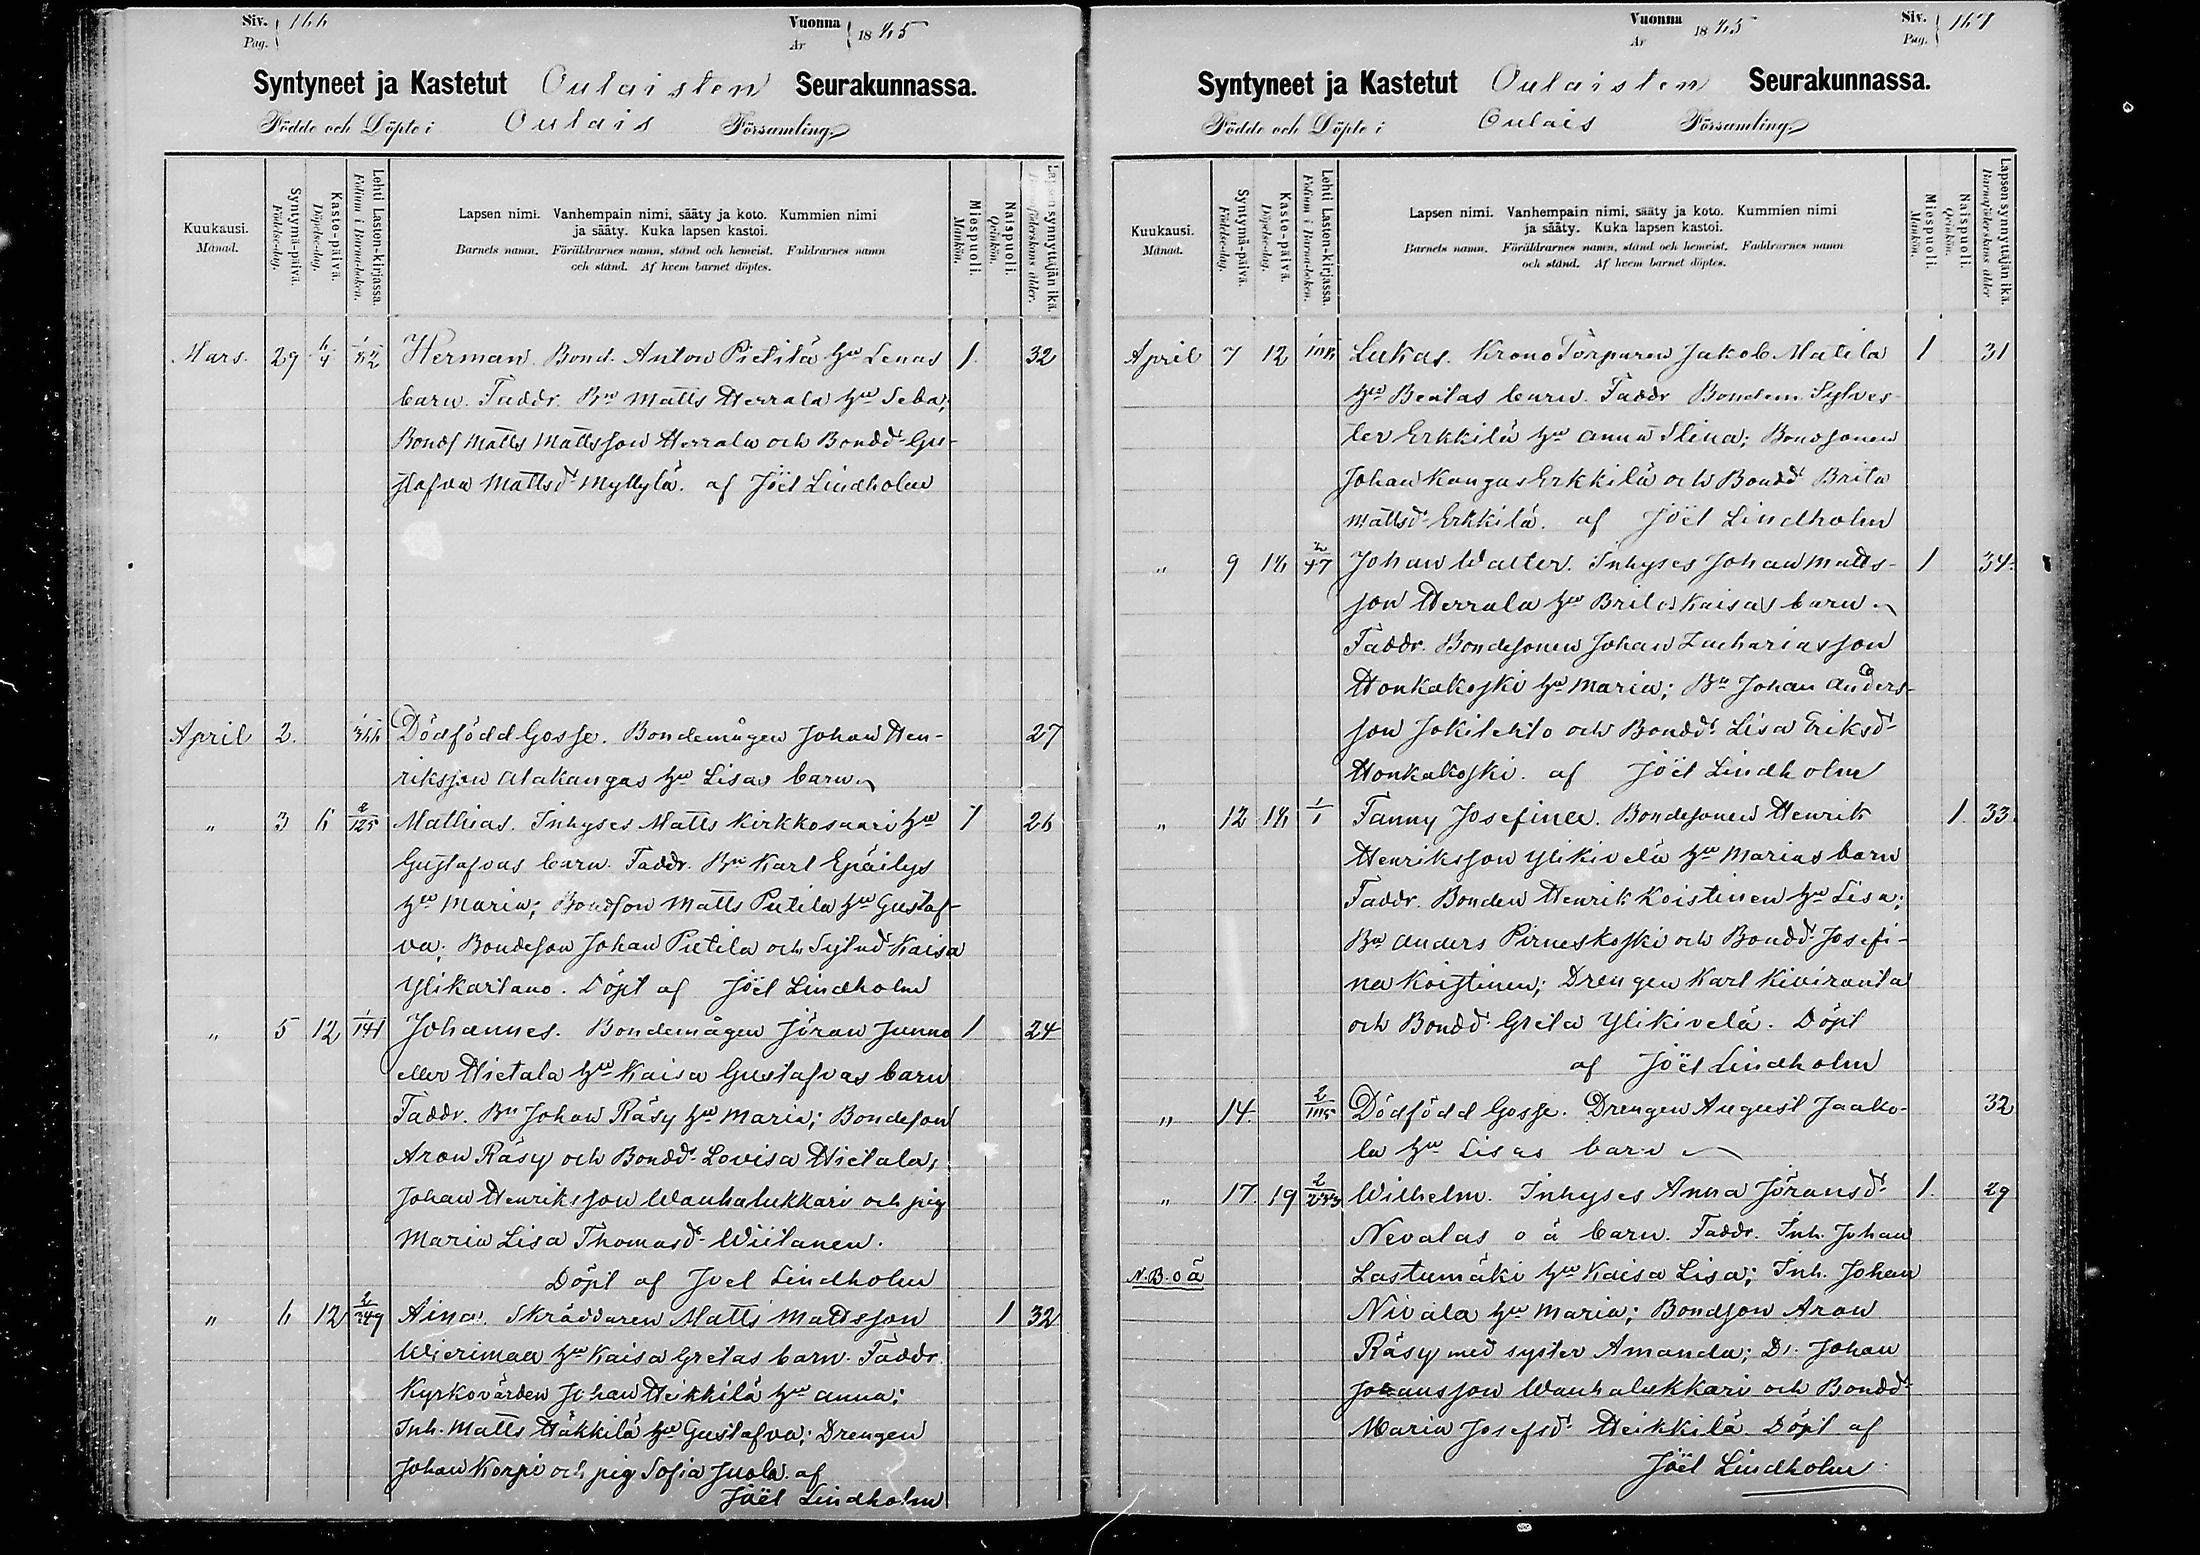 Siv. Pag. 166
Vuonna År 1865
Syntyneet ja Kastetut Oulaisten Seurakunnassa.
Födde och Döpte i Oulais Församling.
Kuukausi. Månad.
Syntymä-päivä. Födelse-dag.
Kaste-päivä. Döpelse-dag.
Lehti Lasten-kirjassa. Folium i Barna-boken.
Lapsen nimi. Vanhempain nimi, sääty ja koto. Kummien nimi
ja sääty. Kuka lapsen kastoi.
Barnets namn. Föräldrarnes namn, stånd och hemvist. Faddrarnes namn
och stånd. Af hvem barnet döptes.
Miespuoli. Mankön.
Naispuoli. Qvinkön.
Lapsen synnyttäjän ikä.
Mars. 29 6/4 Herman. Bond. Anton Pietilä hu Lenas 1. 32
barn. Faddr. Bn Matts Herrala hu Seba;
Bonds Matts Mattsson Herrala och Bondd. Gu-
stafva Mattsd. Myllylä. af Joël Lindholm
April 2. Dödfödd Gosse. Bondemågen Johan Hen- 27
riksson Alakangas hu Lisas barn
" 3 6 2/125 Mathias. Inhyses Matts Kirkkosaari hu 1 26
Gustafvas barn. Faddr. Bn Karl Epäilys
hu Maria; Bondson Matts Pietila hu Gustaf-
va; Bondeson Johan Pietila och Sytnd Kaisa
Ylikartano. Döpt af Joël Lindholm
" 5 12 1/141 Johannes. Bondemågen Jöran Junno 1 24
eller Hietala hu Kaisa Gustafvas barn
Faddr. Bn Johan Räsy hu Maria; Bondeson
Aron Räsy och Bondd. Lovisa Hietala;
Johan Henriksson Wanhalukkari och pig
Maria Lisa Thomasd. Wiitanen.
Döpt af Joel Lindholm
" 6 12 Aina. Skräddaren Matts Mattsson 1 32
Wierimaa hu Kaisa Gretas barn. Faddr.
Kyrkovärden Johan Heikkilä hu Anna;
Inh. Matts Häkkilä hu Gustafva; Drengen
Johan Korpi och pig Sofia Juola. af
Joël Lindholm
Vuonna År 1865
Siv. Pag. 167
Syntyneet ja Kastetut Oulaisten Seurakunnassa.
Födde och Döpte i Oulais Församling.
Kuukausi. Månad.
Syntymä-päivä. Födelse-dag.
Kaste-päivä. Döpelse-dag.
Lehti Lasten-kirjassa. Folium i Barna-boken.
Lapsen nimi. Vanhempain nimi, sääty ja koto. Kummien nimi
ja sääty. Kuka lapsen kastoi.
Barnets namn. Föräldrarnes namn, stånd och hemvist. Faddrarnes namn
och stånd. Af hvem barnet döptes.
Miespuoli. Mankön.
Naispuoli. Qvinkön.
Lapsen synnyttäjän ikä. Barnaföderskans ålder
April 7 12 Lukas. Krono Torparen Jakob Matila 1 31
hu Beatas barn. Faddr Bonden Sylves-
ter Erkkilä hu Anna Stina; Bondsonen
Johan KangasErkkilä och Bondd Brita
Mattsd. Erkkilä. af Joël Lindholm
" 9 16 2/47 Johan Walter. Inhyses Johan Matts- 1 34
son Herrala hu Brita Kaisas barn.
Faddr. Bondesonen Johan Zachariasson
Honkakoski hu Maria; Bn Johan Anders-
son Jokilehto och Bondd. Lisa Eriksd.
Honkakoski. af Joël Lindholm
" 12 16 1/1 Fanny Josefina. Bondesonen Henrik 1. 33
Henriksson Ylikivelä hu Marias barn
Faddr. Bonden Henrik Koistinen hu Lisa;
Bn Anders Pirneskoski och Bondd. Josefi-
na Koistinen; Drengen Karl Kiviranta
och Bondd. Greta Ylikivelä. Döpt
af Joël Lindholm
" 14. Dödfödd Gosse. Drengen August Jaako- 32
la hu Lisas barn
" 17. 19 Wilhelm. Inhyses Anna Jöransd. 1. 29
Nevalas o ä barn. Faddr. Inh. Johan
N.B. o ä Lastumäki hu Kaisa Lisa; Inh. Johan
Nivala hu Maria; Bondson Aron
Räsy med syster Amanda; Dr. Johan
Johansson Wanhalukkari och Bondd.
Maria Josefsd. Heikkilä Döpt af
Joël Lindholm